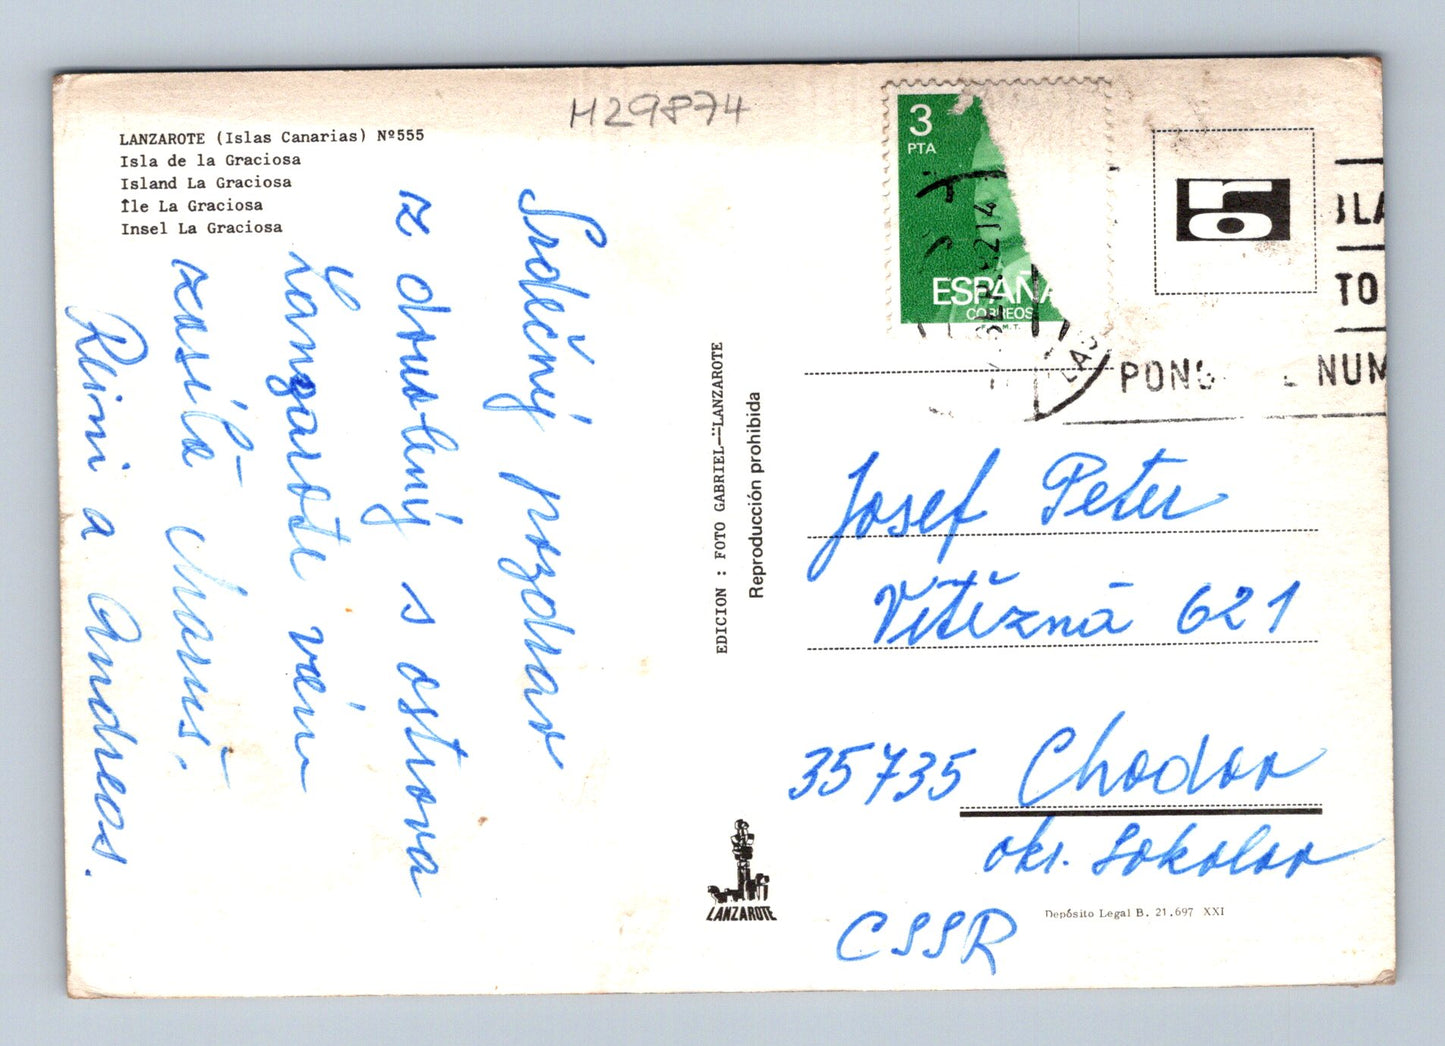 H29874
LANZAROTE (Islas Canarias) Nº555
Isla de la Graciosa
Island La Graciosa
Île La Graciosa
Insel La Graciosa
Srdečný pozdrav
z dovolený s ostrova
Lanzarote vám
zasílá
Reimi a Andreas.
EDICION : FOTO GABRIEL—LANZAROTE
Reproducción prohibida
LANZAROTE
3
PTA
ESPAÑA
CORREOS
F.N.M.T.
TO
NUM
Josef Peter
Vítězná 621
35735 Chodov
okr. Sokolov
CSSR
Depósito Legal B. 21.697 XXI